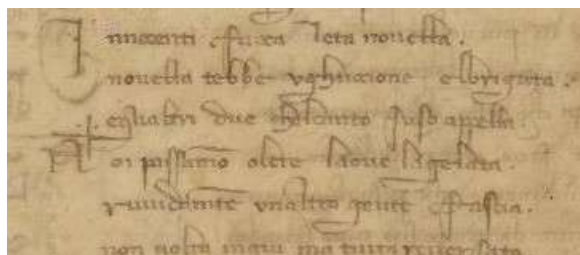 Innocenti facea leta novella
novella tebbe ughuccione elbrigata
eglialtri due chelcanto suso apella
Noi passamo oltre laove lagelata
ruvidamente unaltra gente fascia
non volta ingiu ma tutta reversata